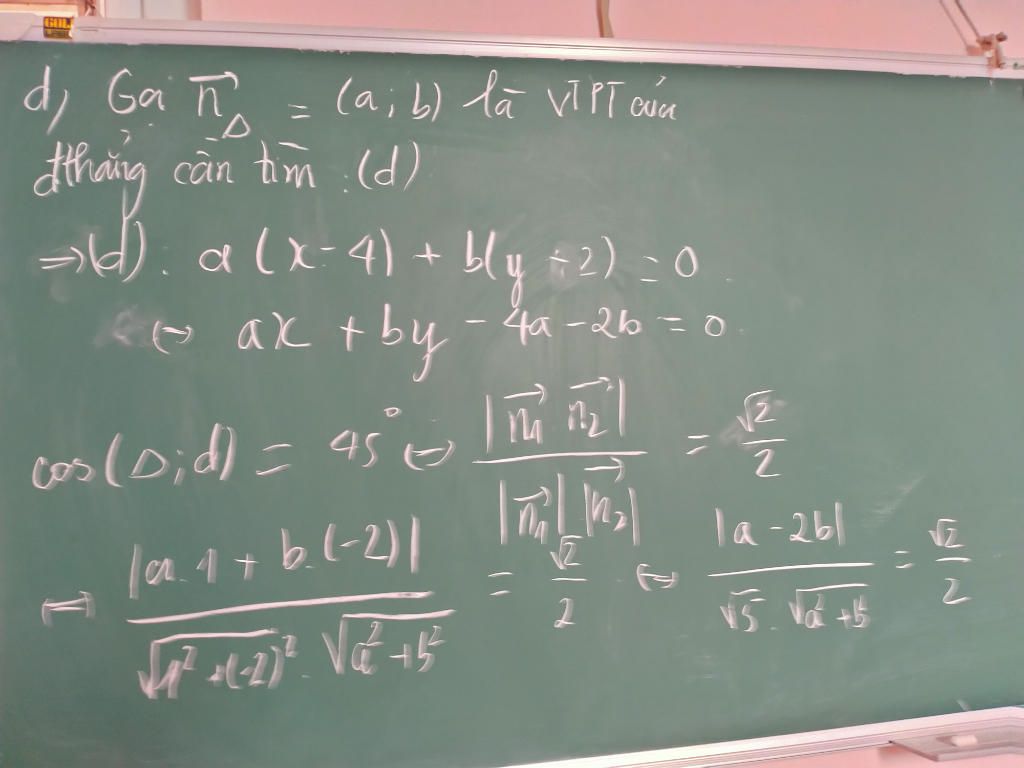 GOL
d, Gọi n⃗_Δ = (a; b) là VTPT của
đthẳng cần tìm (d)
⇒(d): a(x-4) + b(y-2) = 0
⇔ ax + by - 4a - 2b = 0.
cos(Δ;d) = 45° ⇔ |n⃗₁ n⃗₂| / |n⃗₁| |n⃗₂| = √2/2
⇔ |a.1 + b.(-2)| / √(1² + (-2)²) . √(a² + b²) = √2/2 ⇔ |a - 2b| / √5 . √(a² + b²) = √2/2